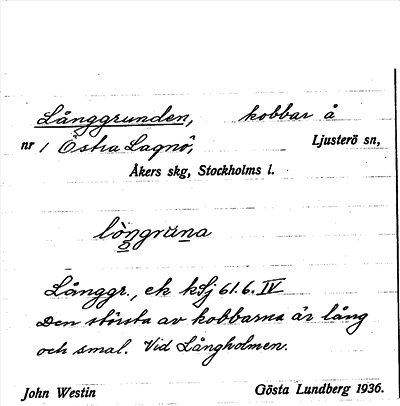 Långgrunden, kobbar å
nr 1 Östra Lagnö, Ljusterö sn,
Åkers skg, Stockholms l.
Långgr., ek kSj 61.6. IV
Den största av kobbarna är lång
och smal. Vid Långholmen.
John Westin Gösta Lundberg 1936.